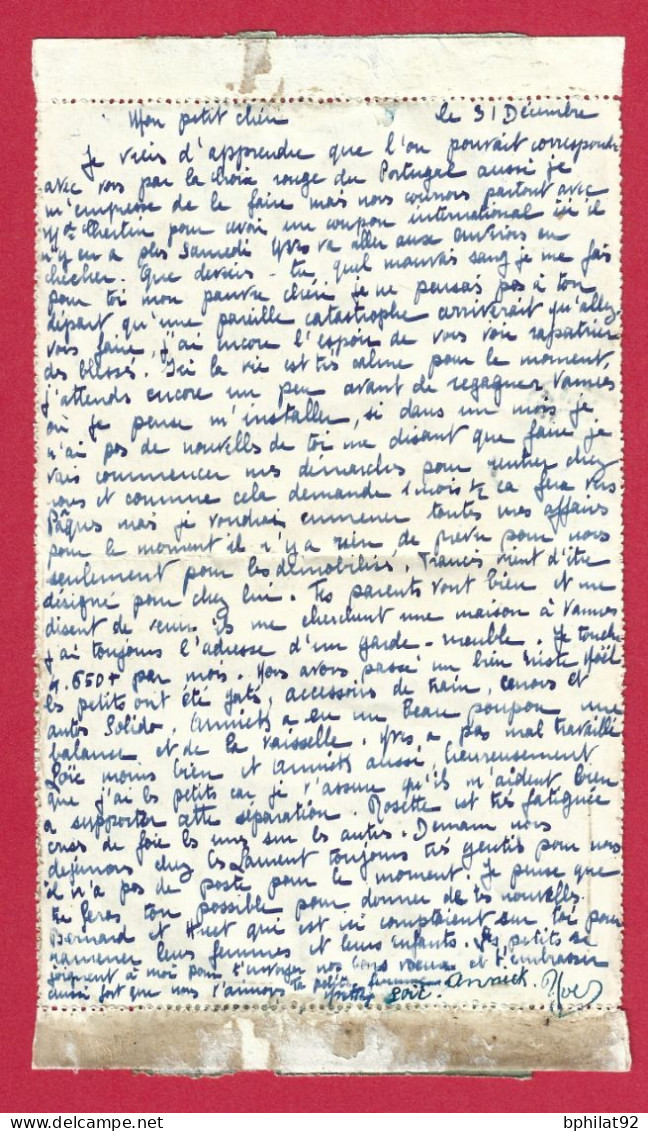 le 31 Décembre
Mon petit chéri
Je viens d'apprendre que l'on pouvait correspondre
avec vous par la Croix rouge du Portugal aussi je
m'empresse de le faire mais nous courons partout avec
pour avoir un coupon international ici il
n'y en a plus Samedi Yves va aller aux environs en
chercher. Que deviens-tu quel mauvais sang je me fais
pour toi mon pauvre chéri je ne pensais pas à ton
départ qu'une pareille catastrophe arriverait qu'allez
vous faire, j'ai encore l'espoir de vous voir rapatrier
des blessés. Ici la vie est très calme pour le moment,
j'attends encore un peu avant de regagner Vannes
où je pense m'installer, si dans un mois je
n'ai pas de nouvelles de toi me disant que faire je
vais commencer mes démarches pour rentrer chez
nous et comme cela demande 1 mois ½ ca fera vers
Pâques mais je voudrais emmener toutes mes affaires
pour le moment il n'y a rien de prévu pour nous
seulement pour les démobilisés. Francis vient d'être
désigné pour chez lui. Tes parents vont bien et me
disent de venir ils me cherchent une maison à Vannes
j'ai toujours l'adresse d'un garde-meuble. Je touche
4.650f par mois. Nous avons passé un bien triste Noël
les petits ont été gatés, accessoires de train, et
autos Solido, Annick a eu un beau poupon une
balance et de la vaisselle. Yves a pas mal travaillé
Loïc moins bien et Annick aussi, heureusement
que j'ai les petits car je t'assure qu'ils m'aident bien
a supporter cette séparation. Rosette est très fatiguée
crises de foie les unes sur les autres. Demain nous
déjeunons chez les Laurent toujours très gentils pour nous
il n'a pas de poste pour le moment. Je pense que
tu feras ton possible pour donner de tes nouvelles.
Bernard et Huet qui est ici comptaient sur toi pour
ramener leurs femmes et leurs enfants. Les petits se
joignent à moi pour t'envoyer nos bons voeux et t'embrasser
aussi fort que nous t'aimons ta petite femme
Loïc. Annick. Yves
© delcampe.net
bphilat92